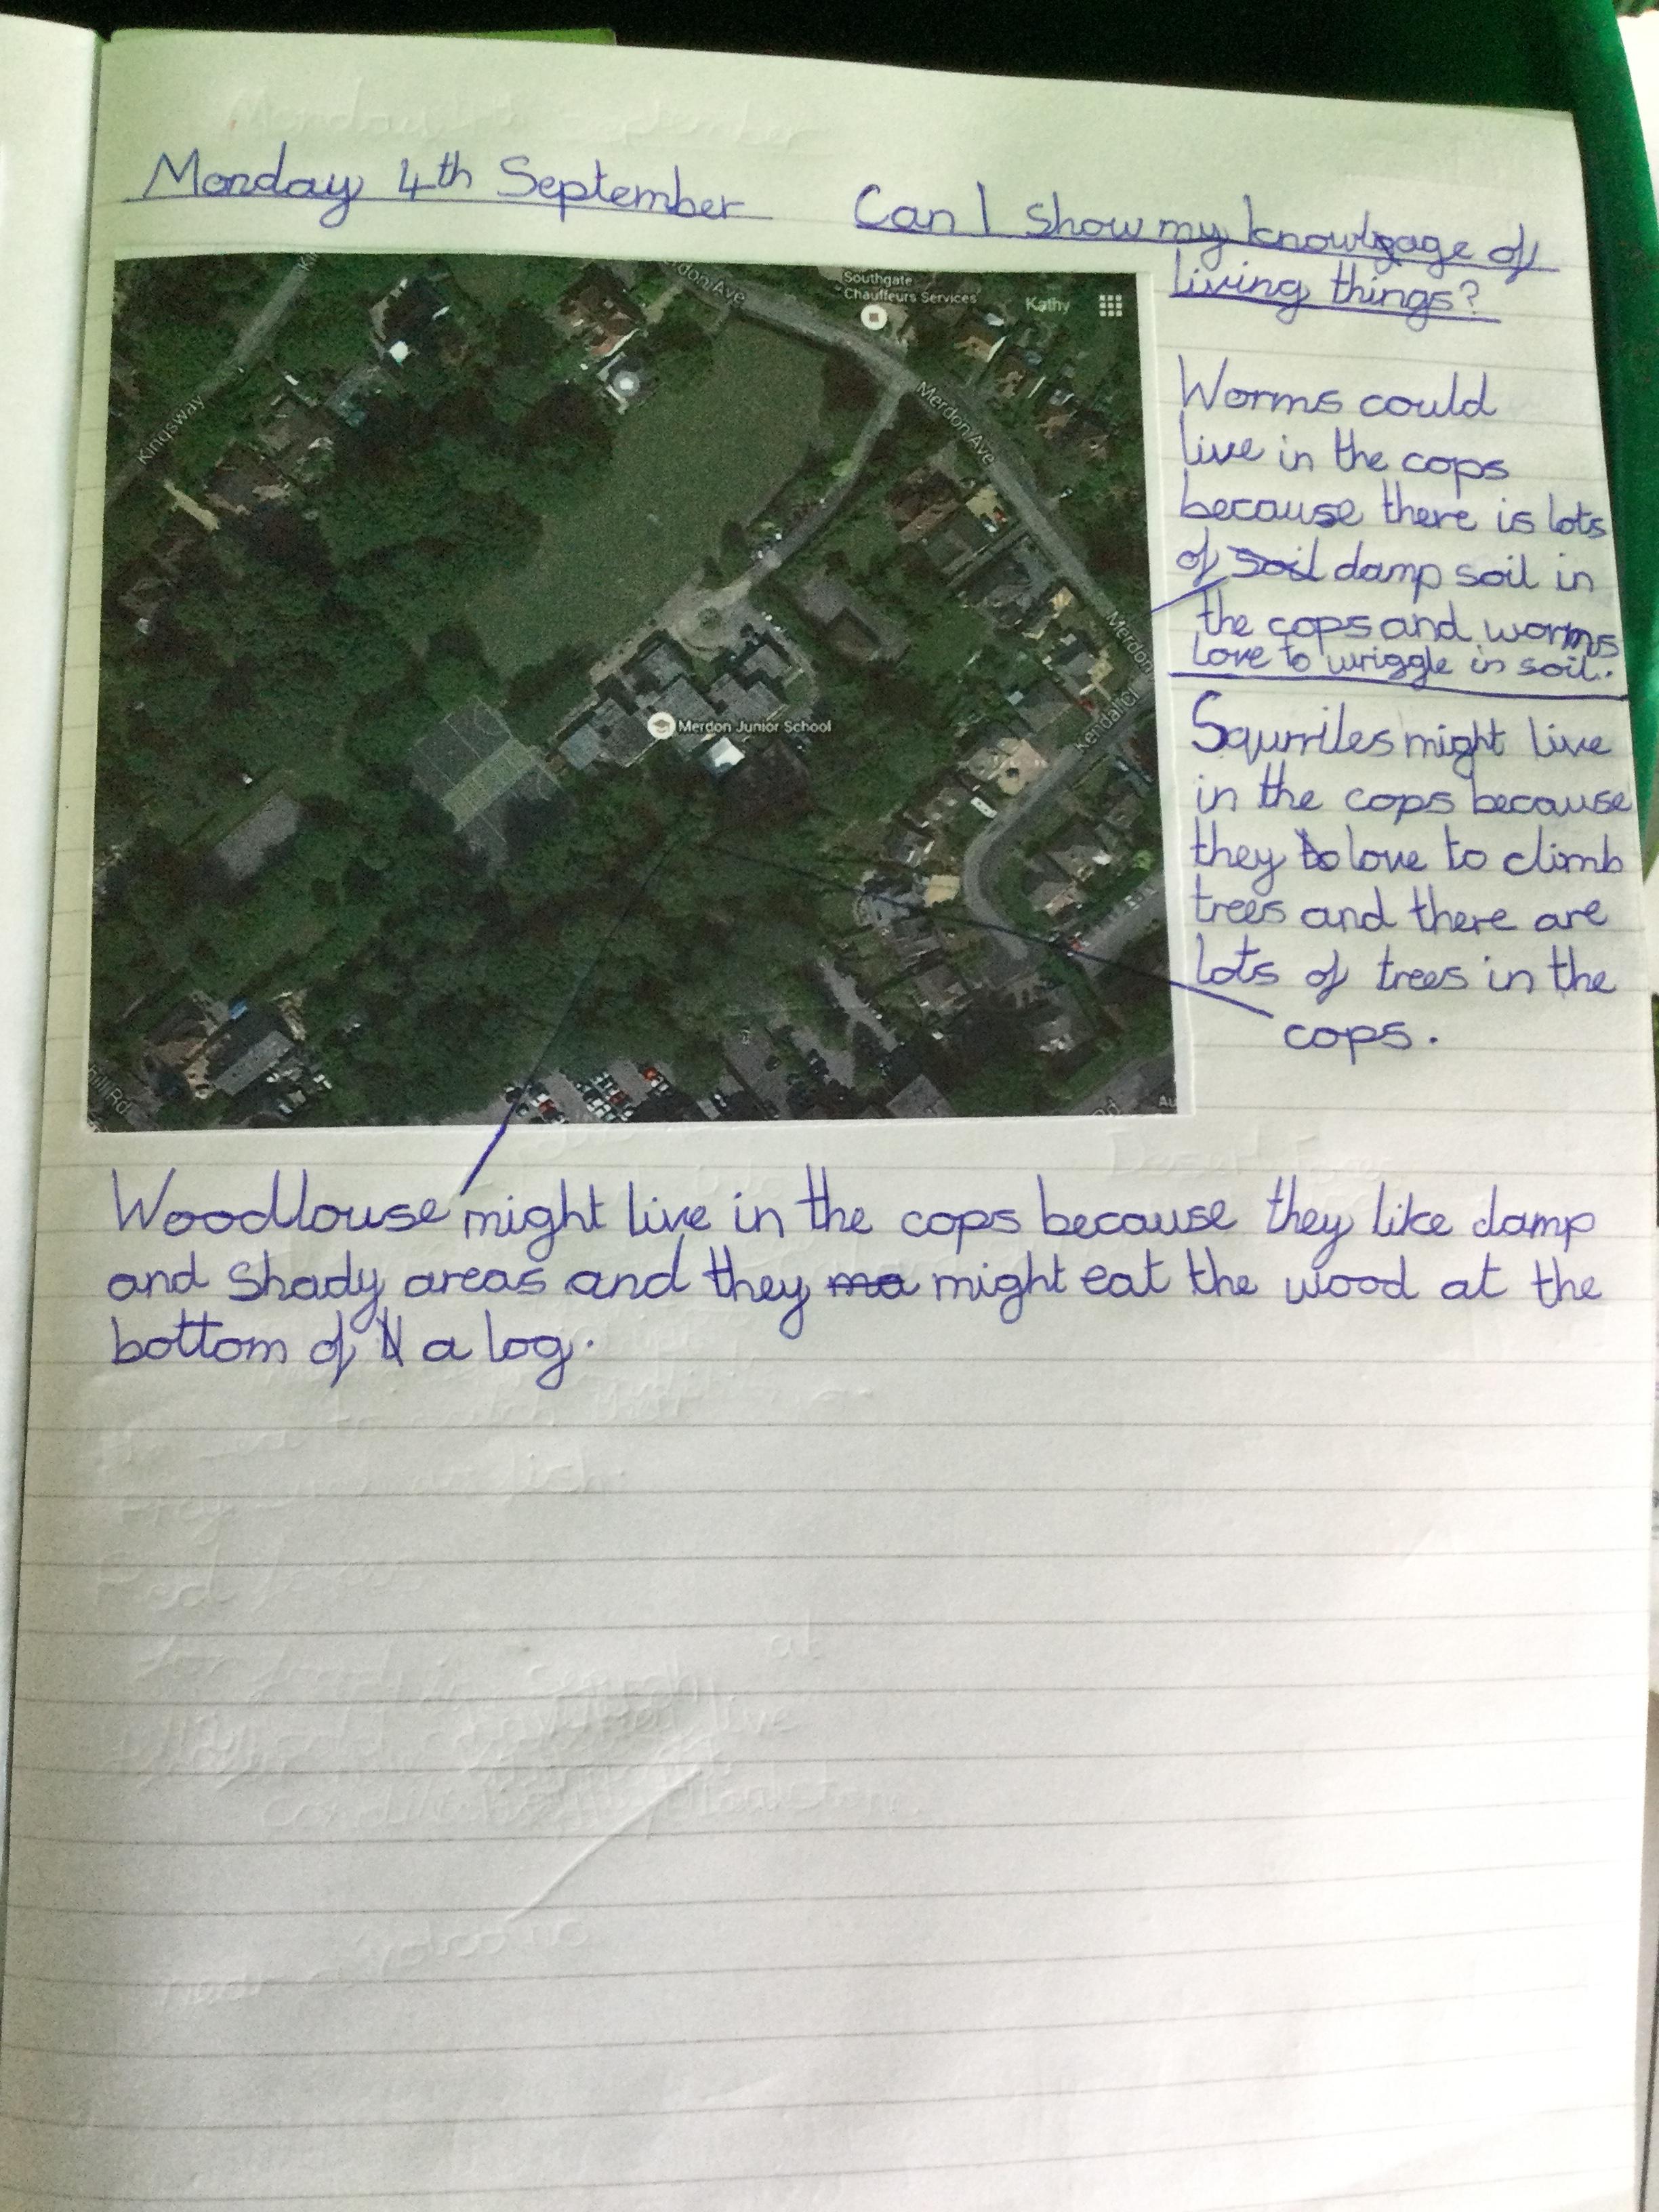 Monday 4th September
Can I show my knowlgage of
living things?
Southgate
Chauffeurs Services
Kathy
Merdon Ave
Kingsway
Merdon Ave
Merdon
Kendal Cl
Merdon Junior School
Worms could
live in the cops
because there is lots
of soil damp soil in
the cops and worms
love to wriggle in soil.
Squrriles might live
in the cops because
they to love to climb
trees and there are
lots of trees in the
cops.
Woodlouse might live in the cops because they like damp
and shady areas and they ma might eat the wood at the
bottom of a log.